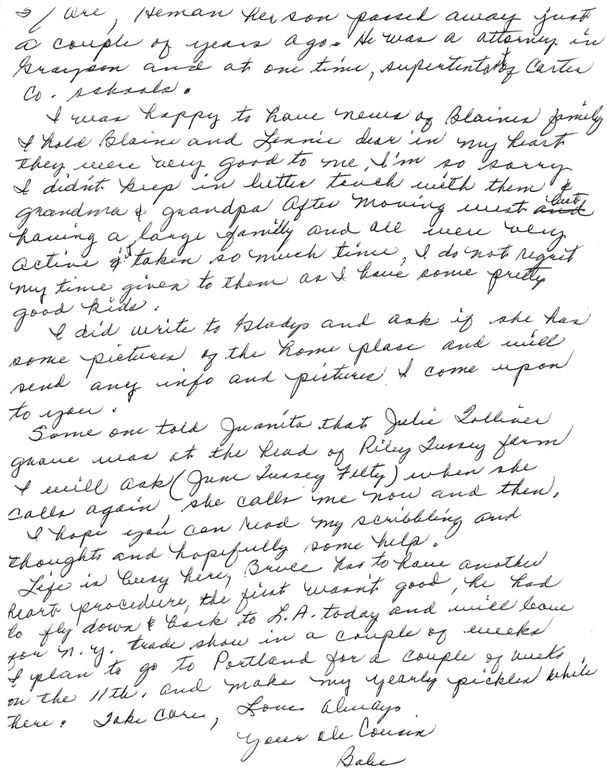 are, Heman her son passed away just
a couple of years ago. He was a attorney in
Grayson and at one time, supertent of Carter
Co. schools.
I was happy to have news of Blaines family
I hold Blaine and Lennie dear in my heart
they were very good to me, I'm so sorry
I didn't keep in better touch with them &
grandma & grandpa after moving west but
having a large family and all were very
active & taken so much time, I do not regret
my time given to them as I have some pretty
good kids.
I did write to Gladys and ask if she has
some pictures of the home place and will
send any info and pictures I come upon
to you.
Some one told Juanita that Julie Tolliver
grave was at the head of Riley Tussey farm
I will ask (June Tussey Filty) when she
calls again, she calls me now and then.
I hope you can read my scribbling and
thoughts and hopefully some help.
Life is busy here, Bruce has to have another
heart procedure, the first wasn't good, he had
to fly down & back to L.A. today and will leave
for N.Y. trade show in a couple of weeks
I plan to go to Portland for a couple of weeks
on the 11th. and make my yearly pickles while
there. Take Care, Love Always
Your Ole Cousin
Babe